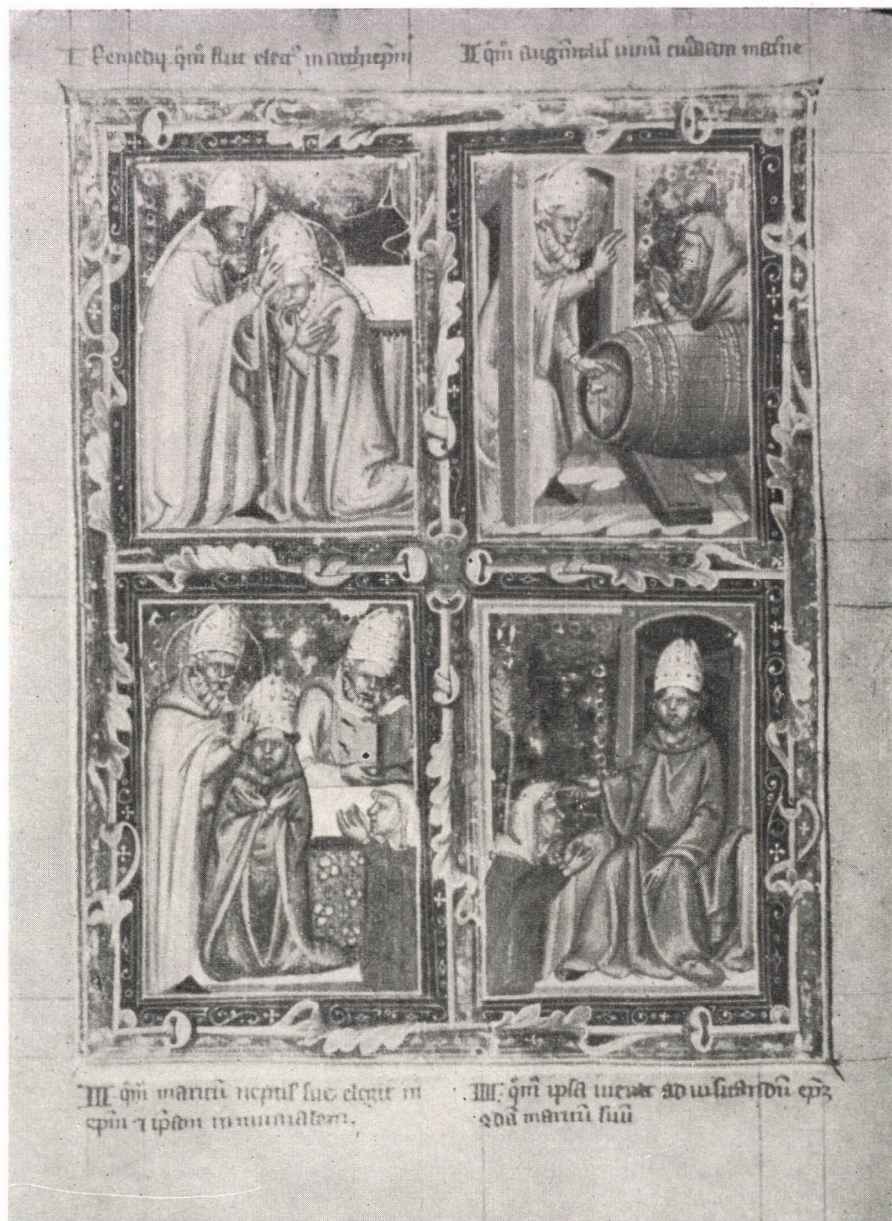 I Remedij. qm̄ fuit elect᷒ in archiep̄m
II qm̄ augm̄tauit uinū cuiusdam matrōe
III. qm̄ maritū neptis sue elegit in
ep̄m ⁊ ip̄am in monialem.
IIII. qm̄ ipsa ueniēt ad uisitandū ep̄ꝫ
qdā maritū suū